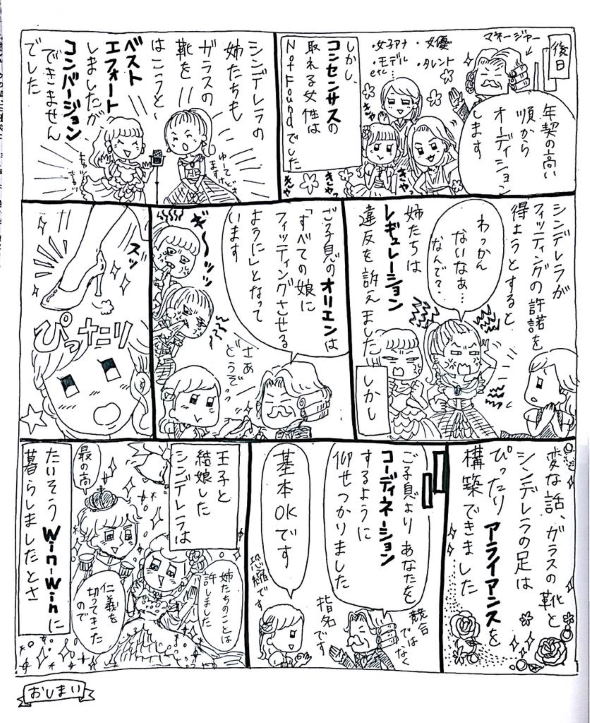 後日
マネージャー
年契の高い
順から
オーディション
します
・女子アナ ・女優
・モデル ・タレント
etc…
しかし、
コンセンサスの
取れる女性は
Not Foundでした
シンデレラの
姉たちも
ガラスの
靴を
はこうと
ベスト
エフォート
しましたが
コンバージョン
できません
でした
シンデレラが
フィッティングの許諾を
得ようとすると、
姉たちは
レギュレーション
違反を訴えました
わっかん
ないなぁ…
なんで?
しかし
ご子息のオリエンは
「すべての娘に
フィッティングさせる
ように」となって
います
ギ〜ッ
さあ
どうぞ
スッ
ぴったり
変な話、ガラスの靴と
シンデレラの足は
ぴったりアライアンスを
構築できました
ご子息よりあなたを
コーディネーション
するように
仰せつかりました
競合
ではなく
指名です
基本OKです
恐縮です
王子と
結婚した
シンデレラは
最の高
姉たちのことは
許しました
仁義を
切ってきた
ので
たいそうWin-Winに
暮らしましたとさ
おしまい